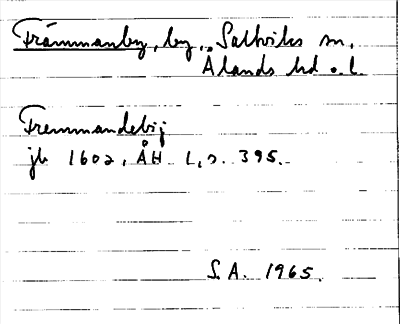 Främmanby, by, Saltviks sn,
Ålands hd o. l.
Fremmandebÿ
jb 1602, ÅH 1, s. 395.
S.A. 1965.